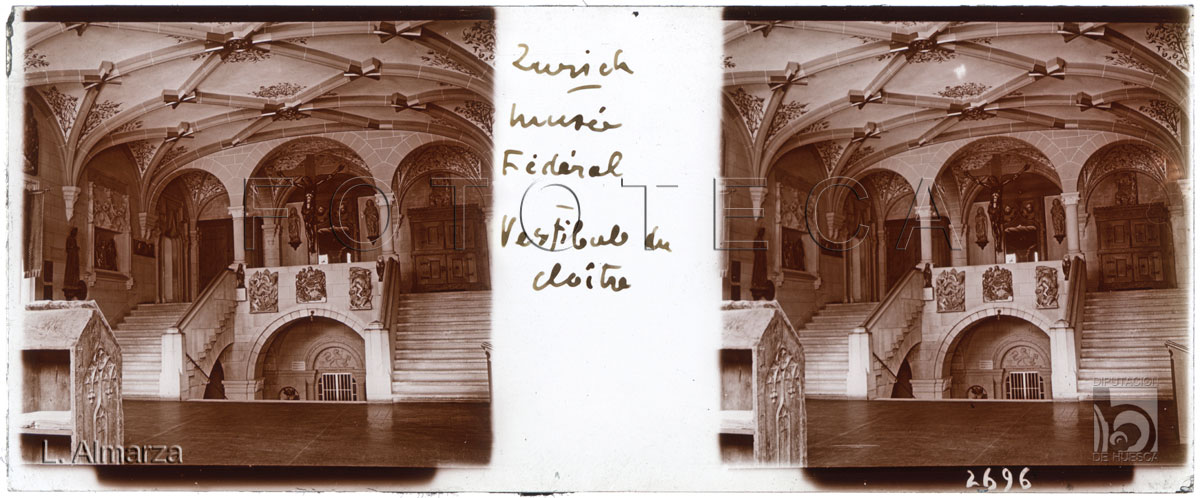 Zurich
Musée
Fédéral
Vestibule du
cloître
FOTOTECA
L. Almarza
DIPUTACIÓN
DE HUESCA
2696